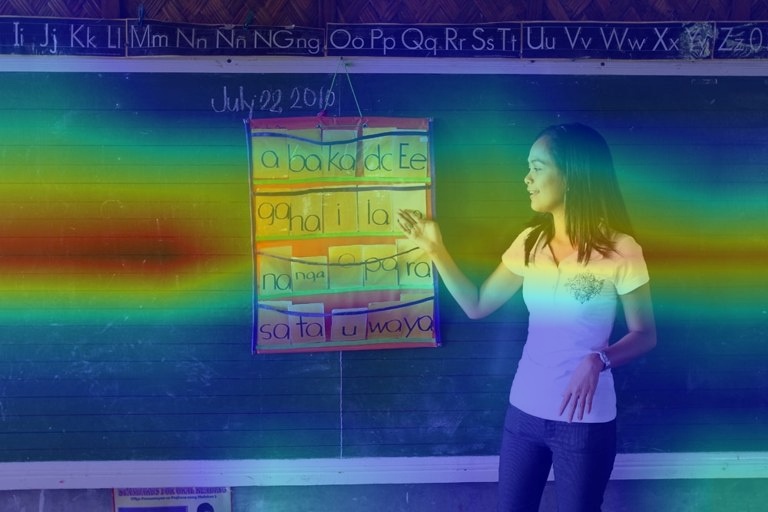 Ii Jj Kk Ll Mm Nn Ññ NGng Oo Pp Qq Rr Ss Tt Uu Vv Ww Xx Yy Zz
July 22 2010
a ba ka dc Ee
ga ha i la
na nga o pa ra
sa ta u wa ya